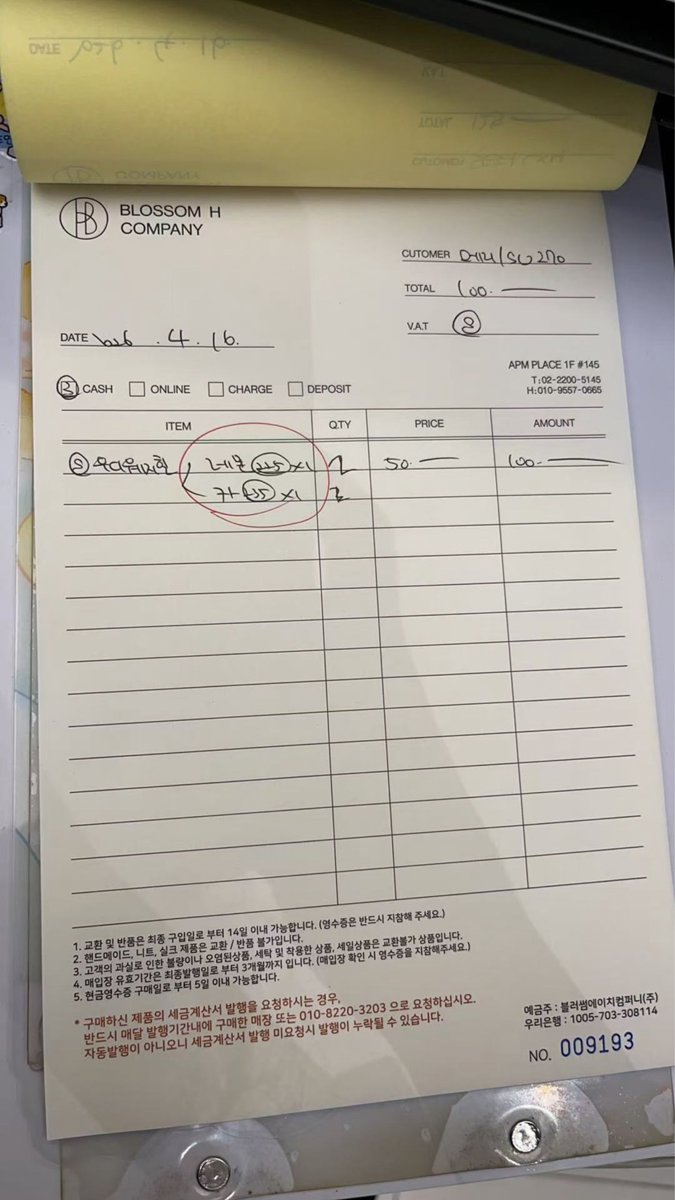 BLOSSOM H
COMPANY
CUTOMER
TOTAL 100.
V.A.T
DATE 2026 . 4 . 16.
APM PLACE 1F #145
T:02-2200-5145
H:010-9557-0665
CASH ONLINE CHARGE DEPOSIT
ITEM QTY PRICE AMOUNT
x1 2 50. 100.
x1
1. 교환 및 반품은 최종 구입일로 부터 14일 이내 가능합니다. (영수증은 반드시 지참해 주세요.)
2. 핸드메이드, 니트, 실크 제품은 교환 / 반품 불가입니다.
3. 고객의 과실로 인한 불량이나 오염된상품, 세탁 및 착용한 상품, 세일상품은 교환불가 상품입니다.
4. 매입장 유효기간은 최종발행일로 부터 3개월까지 입니다. (매입장 확인 시 영수증을 지참해주세요.)
5. 현금영수증 구매일로 부터 5일 이내 가능합니다.
* 구매하신 제품의 세금계산서 발행을 요청하시는 경우,
반드시 매달 발행기간내에 구매한 매장 또는 010-8220-3203 으로 요청하십시오.
자동발행이 아니오니 세금계산서 발행 미요청시 발행이 누락될 수 있습니다.
예금주 : 블러썸에이치컴퍼니(주)
우리은행 : 1005-703-308114
NO. 009193